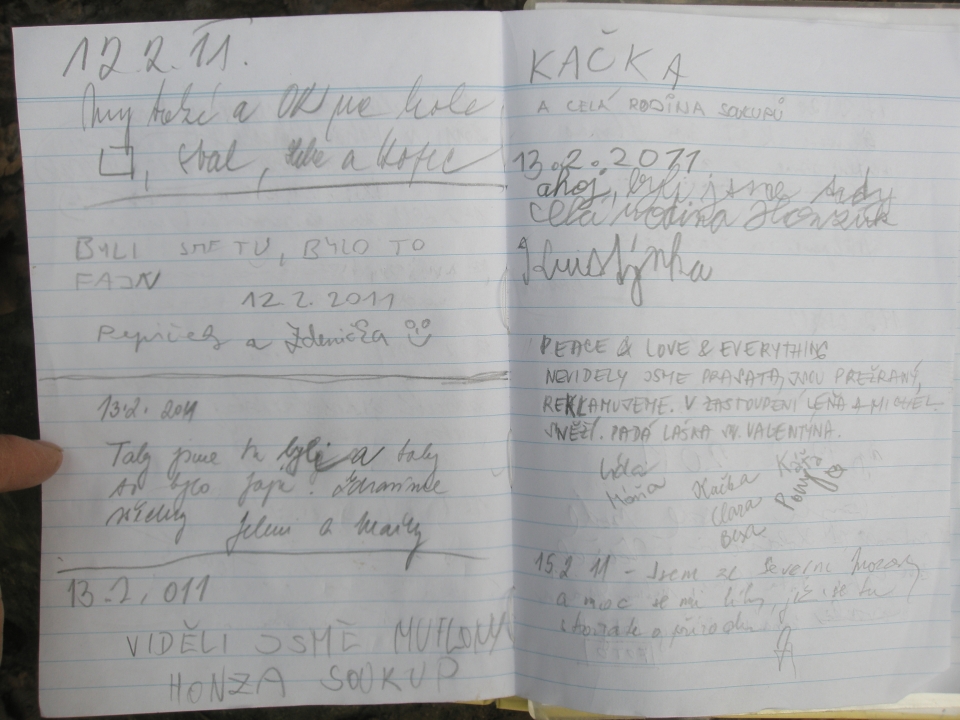 12.2.11.
a na kole
, a
BYLI SME TU, BYLO TO
FAJN
12.2.2011
Pepíček a Zdenička
13.2. 2011
Taky jsme tu byli a taky
to bylo fajn. Zdravíme
všechny Jeleni a
13.2.011
VIDĚLI JSMĚ MUFLONA
HONZA SOUKUP
KAČKA
A CELÁ RODINA SOUKUPŮ
13.2.2011
ahoj, byli jsme tady
celá rodina
Kristýnka
PEACE & LOVE & EVERYTHING
NEVIDELY JSME PRASATA, JSOU PŘEŽRANÝ,
REKLAMUJEME. V ZASTOUPENÍ LEŇA & MICHEL.
SNĚŽÍ. PADÁ LÁSKA SV. VALENTÝNA.
Káťa
Máňa Kačka
Clara
15.2 11 - Jsem ze Severní Moravy
a moc se mi líbí, že se tu
staráte o přírodu.